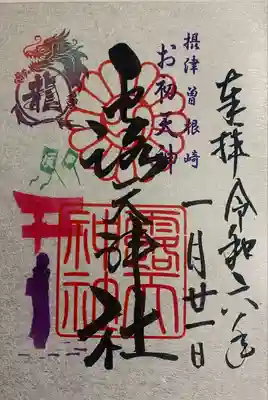 奉拝 令和六年
一月廿一日
摂津曽根崎
お初天神
露天神社
龍
露天
神社